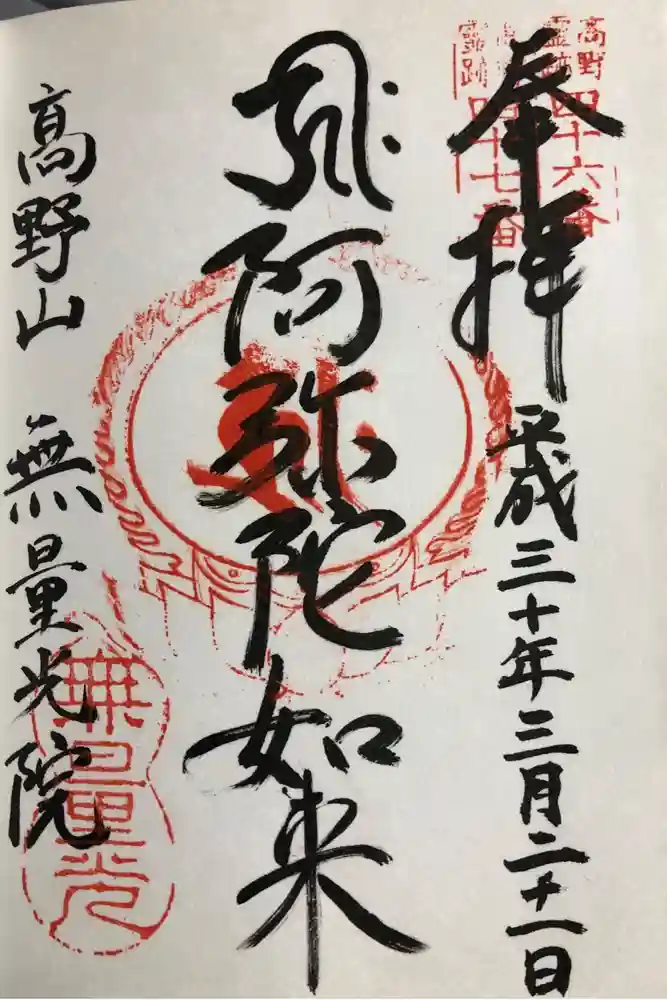 奉拝
平成三十年三月二十一日
高野
靈跡
四十六番
靈跡
四十七番
𑖮𑖿𑖨𑖱𑖾
阿弥陀如来
高野山 無量光院
無量光